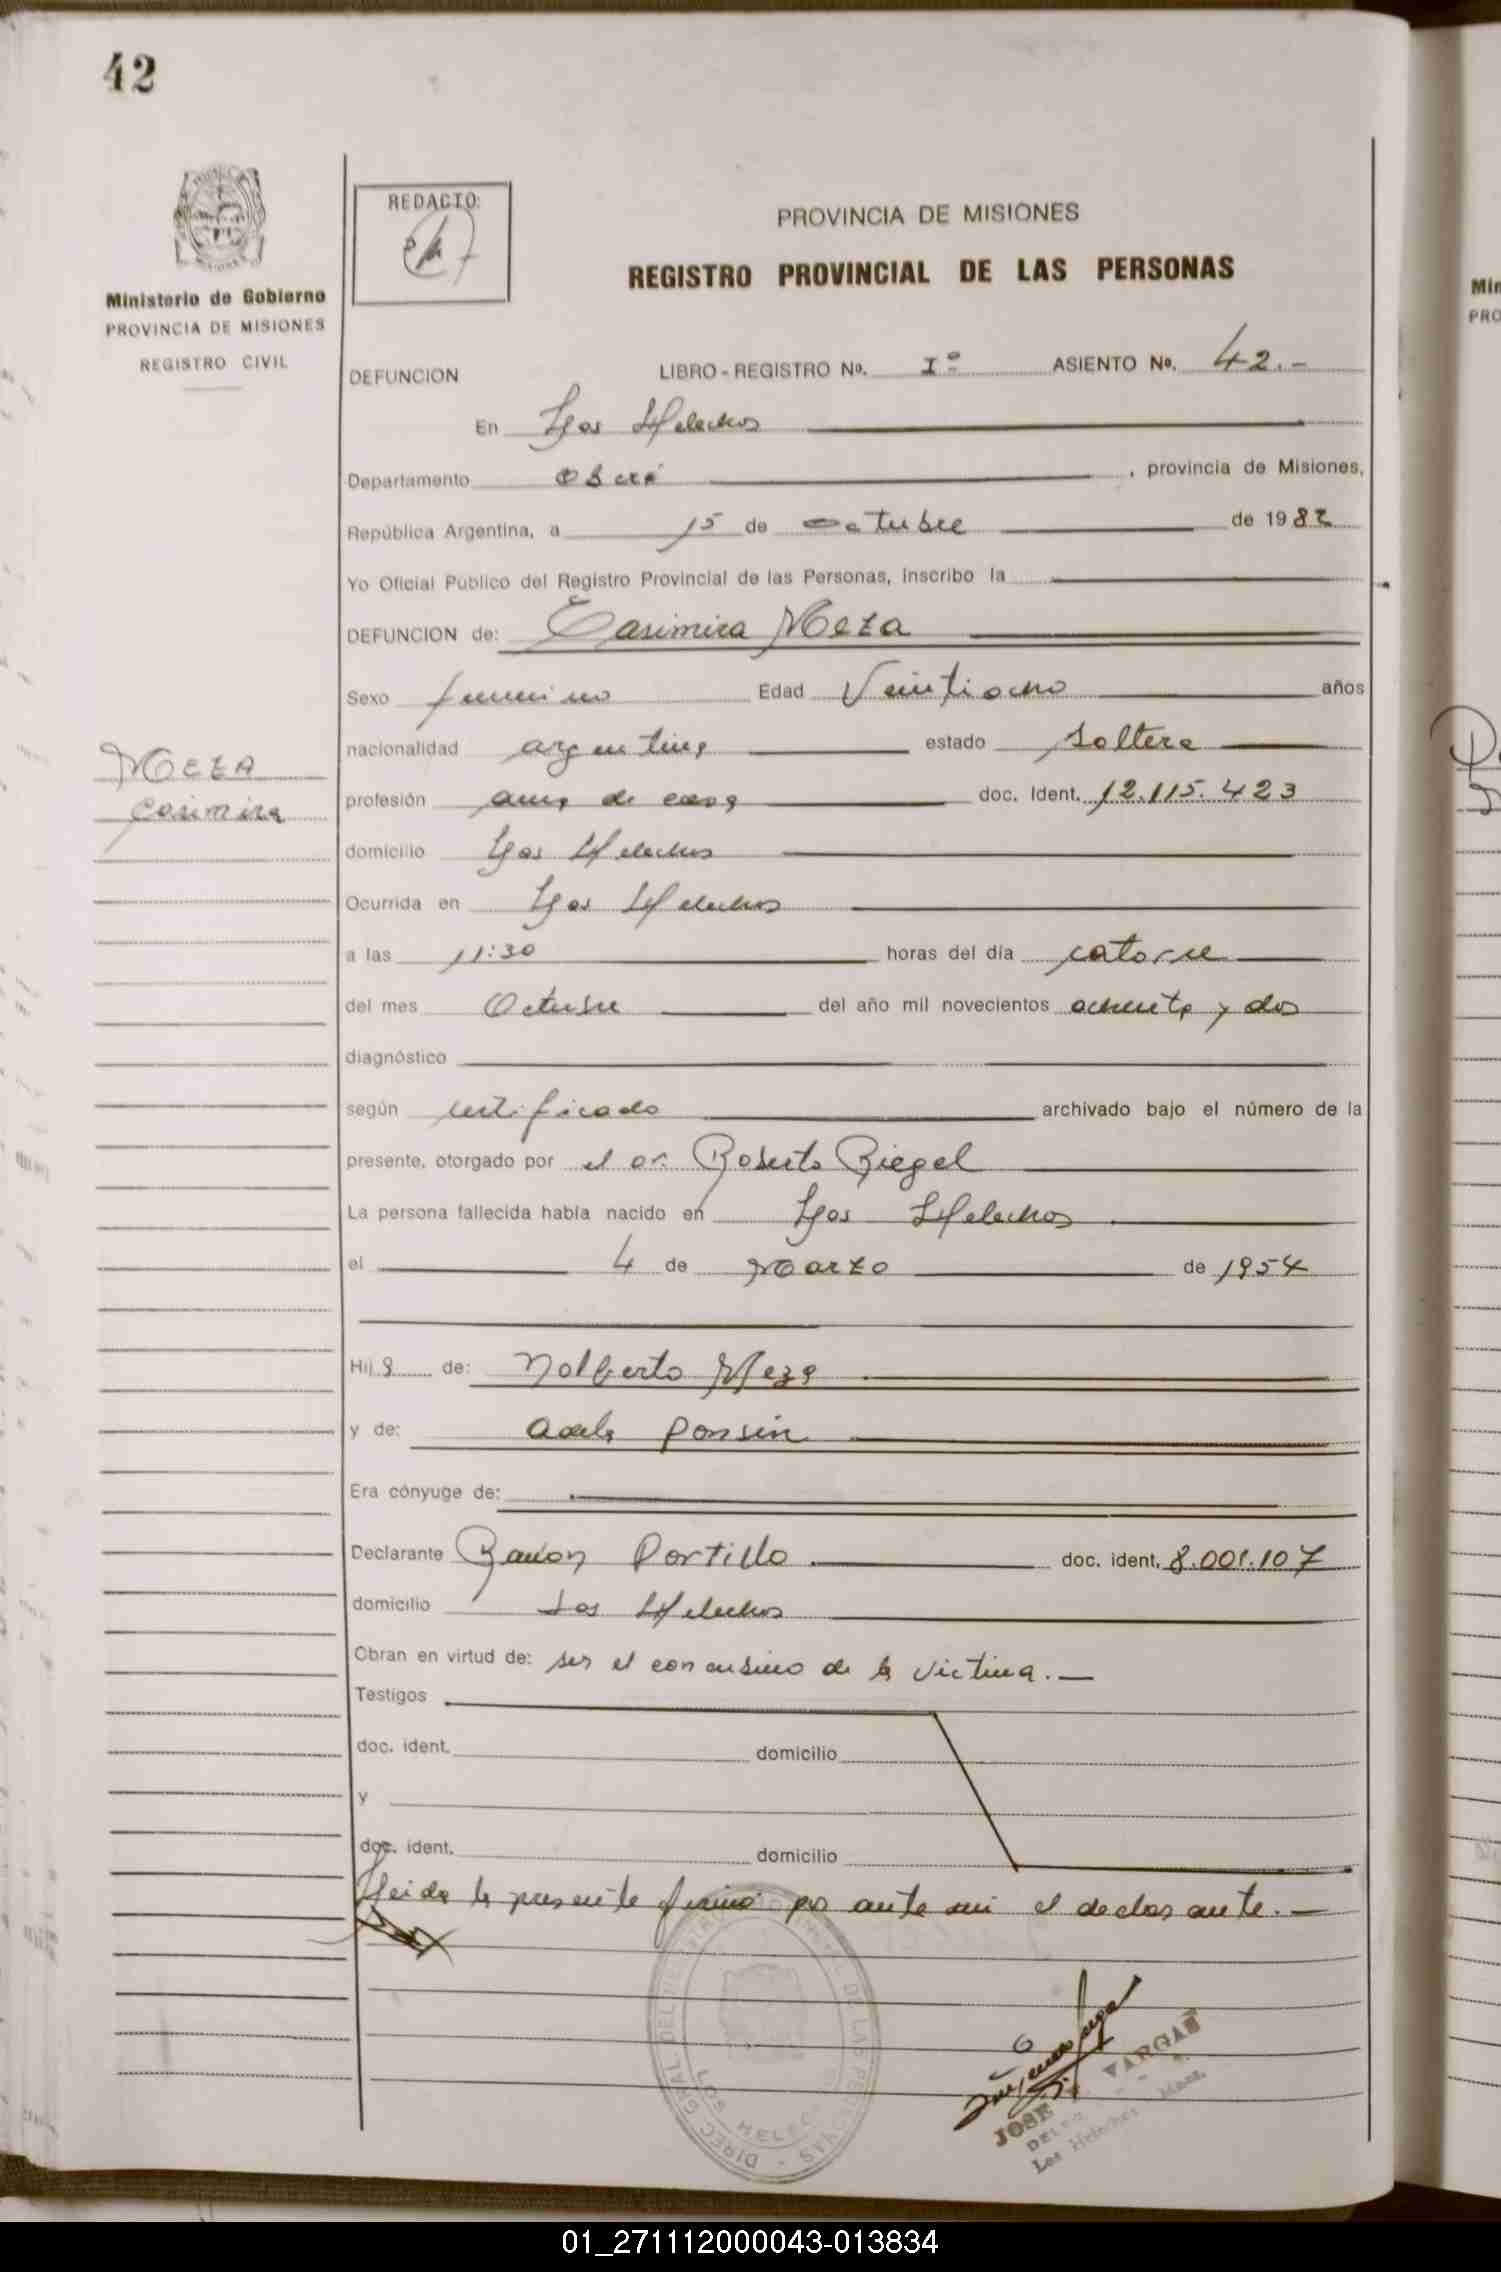 42
REDACTO:
PROVINCIA DE MISIONES
REGISTRO PROVINCIAL DE LAS PERSONAS
Ministerio de Gobierno
PROVINCIA DE MISIONES
REGISTRO CIVIL
DEFUNCION LIBRO - REGISTRO Nº. Iº ASIENTO Nº. 42.-
En Los Helechos
Departamento Oberá , provincia de Misiones,
República Argentina, a 15 de octubre de 1982
Yo Oficial Público del Registro Provincial de las Personas, inscribo la
DEFUNCION de: Casimira Meza
Sexo femenino Edad Veintiocho años
MEZA
Casimira
nacionalidad argentina estado soltera
profesión ama de casa doc. Ident. 12.115.423
domicilio Los Helechos
Ocurrida en Los Helechos
a las 11:30 horas del día catorce
del mes Octubre del año mil novecientos ochenta y dos
diagnóstico
según certificado archivado bajo el número de la
presente, otorgado por el Dr. Roberto Riegel
La persona fallecida había nacido en Los Helechos
el 4 de Marzo de 1954
Hija de: Nolberto Meza
y de: Adela Ponsin
Era cónyuge de:
Declarante Ramon Portillo doc. ident. 8.001.107
domicilio Los Helechos
Obran en virtud de: ser el concubino de la victima.-
Testigos
doc. ident. domicilio
y
doc. ident. domicilio
Leida la presente firmó por ante mi el declarante.-
DIREC. GRAL. DEL REGISTRO PROVINCIAL DE LAS PERSONAS
LOS HELECHOS
JOSE VARGAS
Los Helechos Mnes.
Min
PRO
01_271112000043-013834